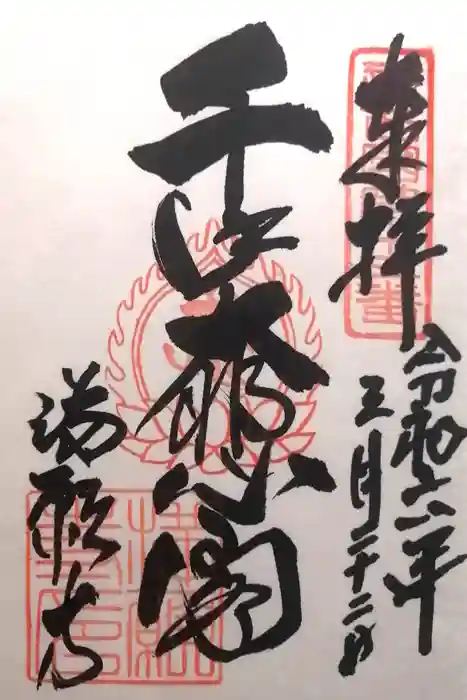 奉拝
令和六年
三月二十二日
千手大悲閣
満願寺